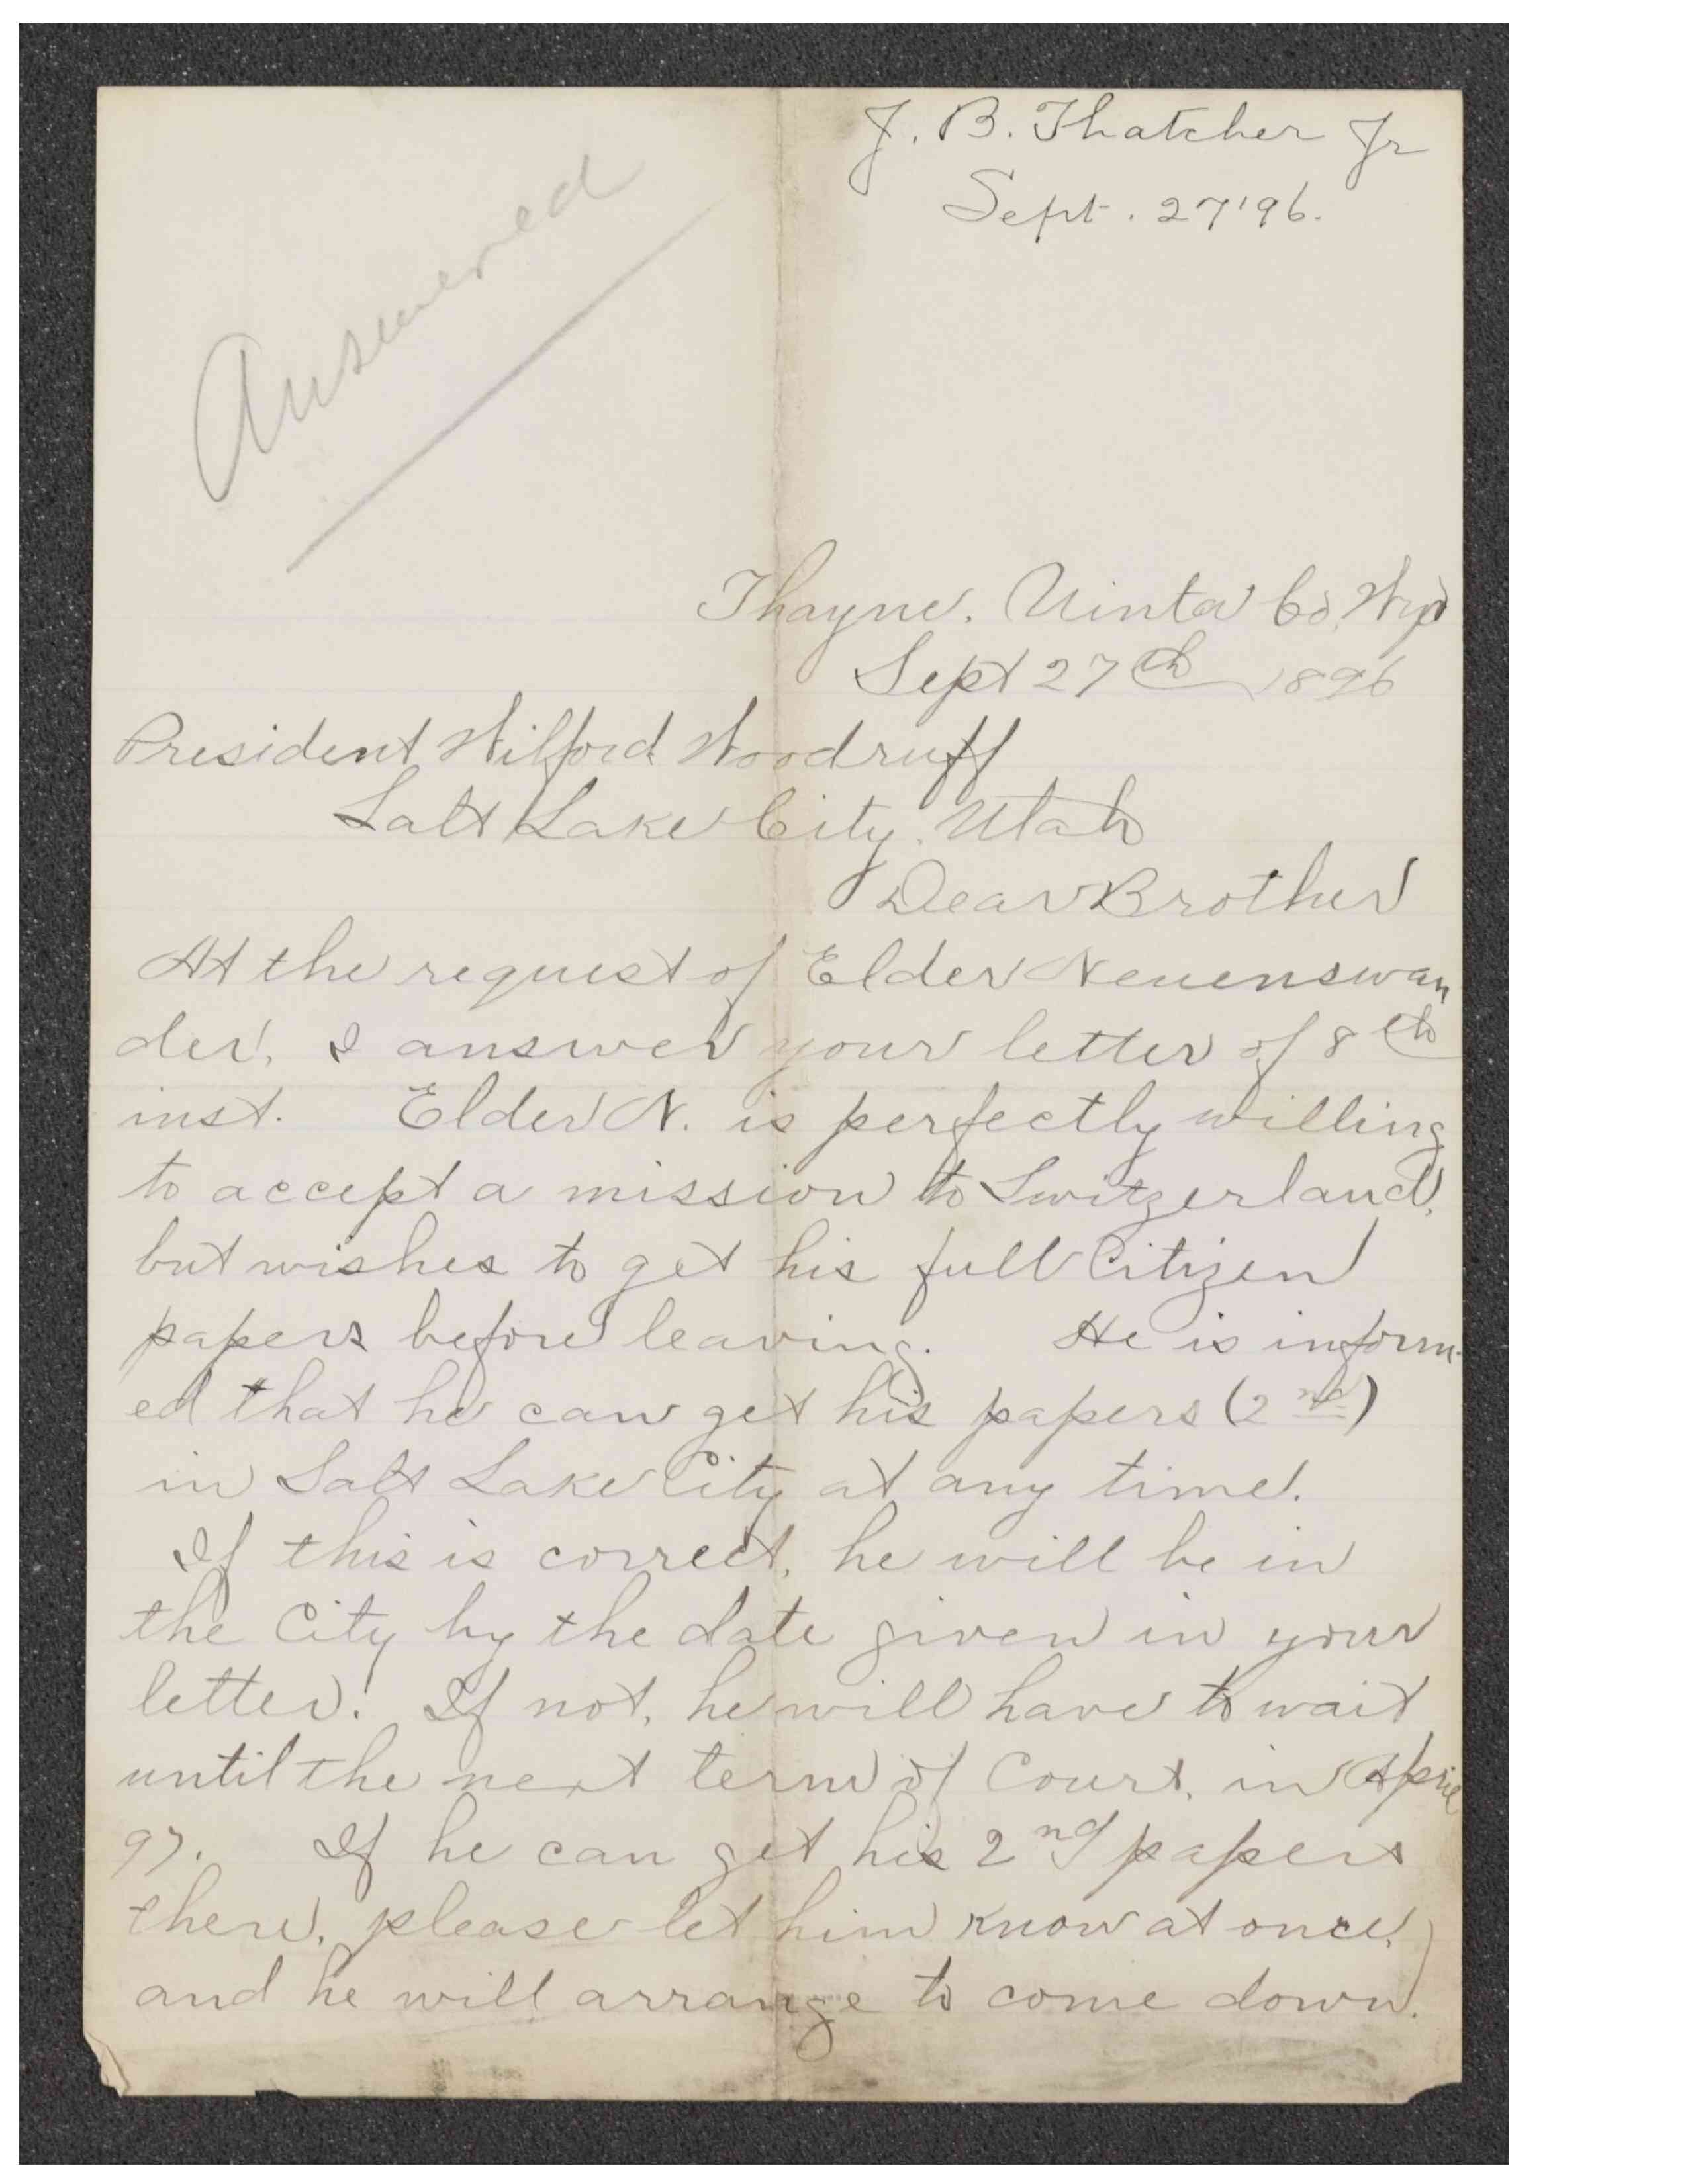 J. B. Thatcher Jr
Sept. 27'96.
Answered
Thayne. Uinta Co, Wyo
Sept 27th 1896
President Wilford Woodruff
Salt Lake City. Utah
Dear Brother
At the request of Elder Neuenswan
der, I answer your letter of 8th
inst. Elder N. is perfectly willing
to accept a mission to Switzerland,
but wishes to get his full Citizen
papers before leaving. He is inform-
ed that he can get his papers (2nd)
in Salt Lake City at any time.
If this is correct, he will be in
the City by the date given in your
letter. If not, he will have to wait
until the next term of Court, in April
97. If he can get his 2nd papers
there, please let him know at once,
and he will arrange to come down.